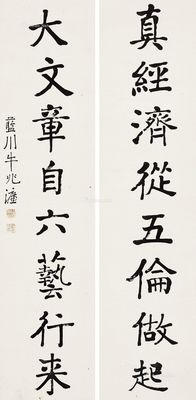 真經濟從五倫做起
大文章自六藝行来
藍川牛兆濂